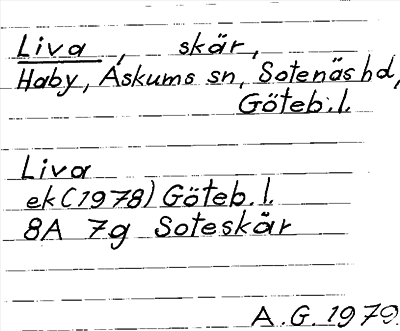 Liva, skär,
Haby, Askums sn, Sotenäs hd,
Göteb. l.
Liva
ek (1978) Göteb. l.
8A 7g Soteskär
A. G. 1979